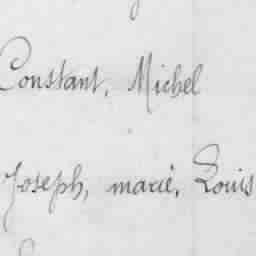 Constant, Michel
Joseph, marié, Louis